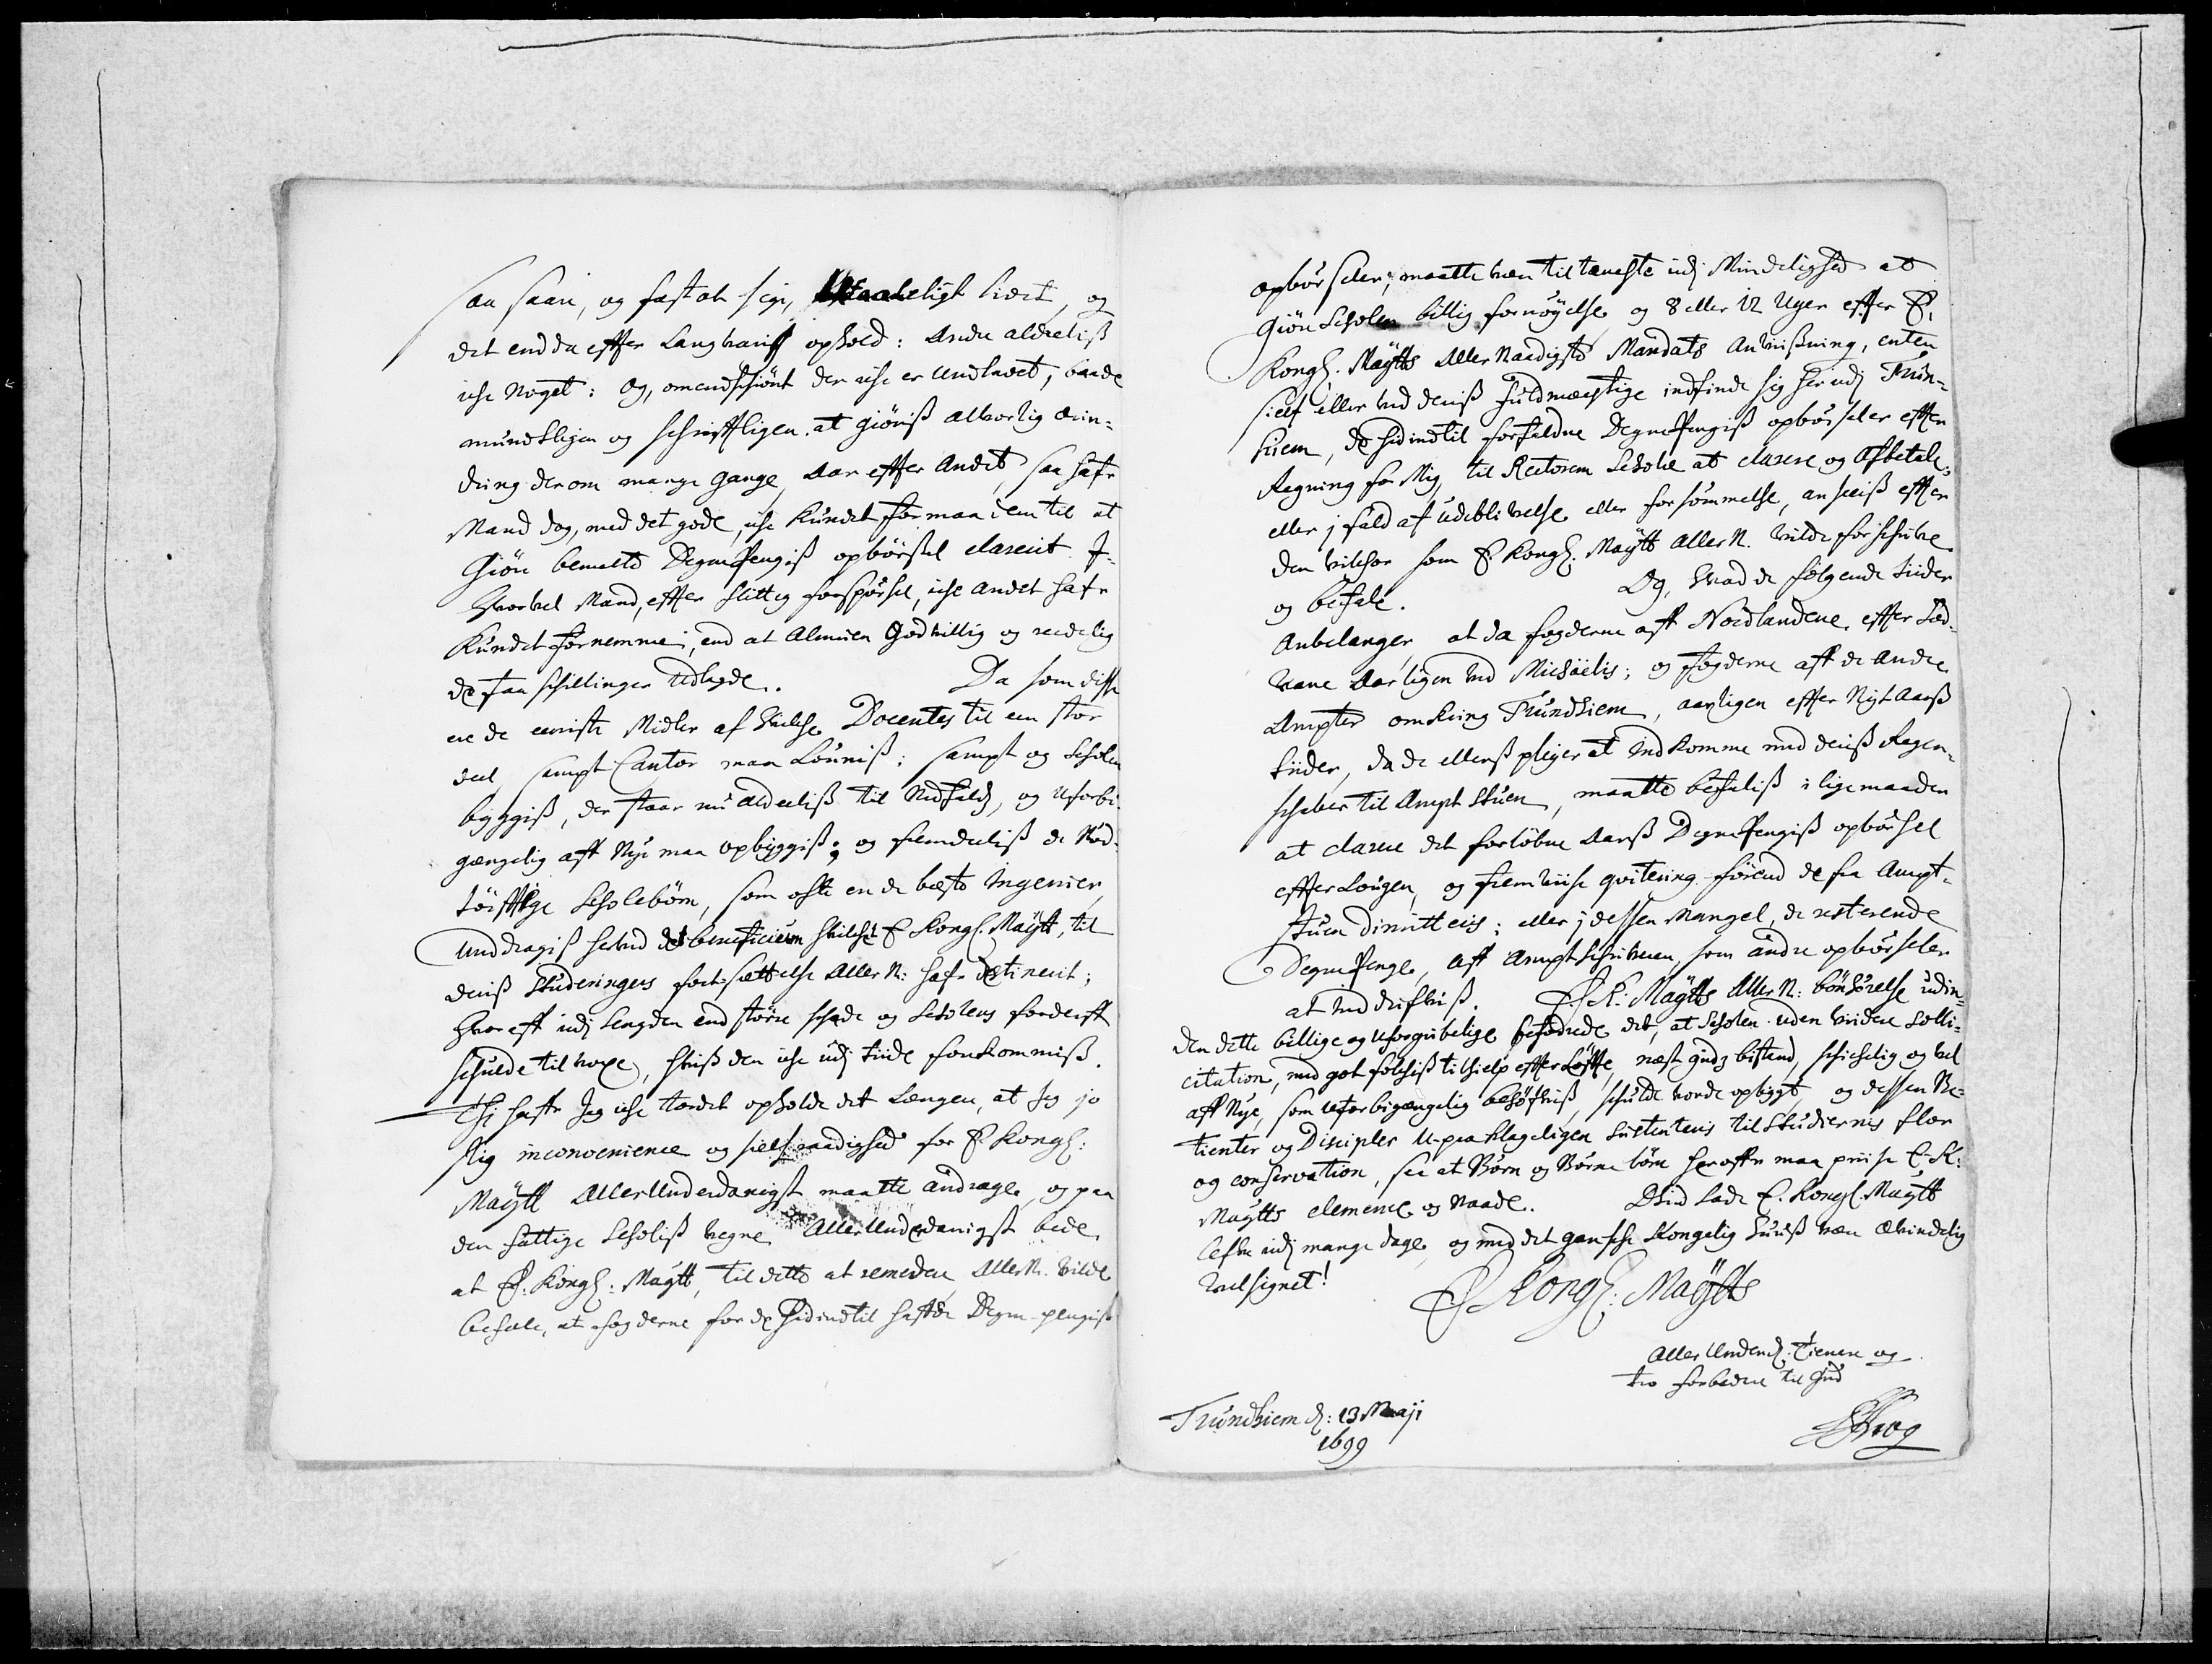 saa faae, og fast at sige, Utaaleligt lidet, og
det endda effter Langvarig ophold: Andre aldeeliß
iche Noget: Og, omendschiönt der iche er Undladt, baade
mundtligen og schrifftligen at giöriß alvorlig Erin-
dring der om mange Gange, Aar effter Andet, saa hafr
Mand dog, med det gode, iche Kundet formaa dem til at
Giöre bemelte Degnepengiß opbörsel clarerit. I-
hvorvel Mand, effter flittig forspörsel, iche andet hafr
Kundet fornemme, end at Almuen Godvillig og reedelig
de faa schillinger Udlagde. Da som disse
ere de eeniste Midler af hvilche Docentes til een stor
deel sampt Cantor maa Lönniß; sampt og Scholen
byggiß, der staar nu aldeeliß til Nidfalds, og Uforbi-
gængelig aff Nye maa opbyggiß; og fremdeeliß de Nöd-
törfftige Scholebörn, som offte ere de beste Ingenier,
Unddragiß herved det beneficium hvilchet E Kongl. Maÿtt, til
deriß Studeringers fortsættelse Aller N: hafr destinerit;
Hvor aff udj Lengden end större schade og Scholens forderff
schulde tilvoxe, hviß den iche udj tiide forekommiß.
Thi haffr Jeg iche tordet opholde det Længer, at Jeg jo
slig inconvenience og sielfraadighed for E. Kongl:
Maÿtt Allerunderdanigst maatte andrage, og paa
den fattige Scholiß vegne Allerunderdanigst bede,
at E. Kongl: Maÿtt, til dette at remedere Aller N. vilde
befale, at fogderne for de hidindtil hafte Degne-pengiß
opbörseler, maatte være tiltænchte udj Mindelighed at
Giöre Scholen billig fornöÿelse og 8 eller 12 Uger effter E.
Kongl. Maÿtts Aller Naadigste Mandats Anviißning, enten
sielf eller ved deriß fuldmægtige indfinde sig her udj Trun-
hiem, de hidindtil forfaldne Degne Pengiß opbörseler effter
Regning for Mig, til Rectorem Scholæ at clarere og Afbetale;
eller j fald af udeblivelse eller forsömmelse, anseeiß effter
den vilchor som E. Kongl: Maÿtt Aller N. vilde forschrive
og befale. Og, hvad de fölgende tiider
Anbelanger, at da fogderne aff Nordlandene, effter Sæd-
vane Aarligen ved Michaëlis; og fogderne aff de andre
Ampter omkring Trundhiem, aarligen effter Nyt Aarß
tiider, da de ellerß plejer at indkomme med deriß Regen-
schaber til Ampt Stuen, maatte befaliß i lige maader
at clarere det forlöbne Aarß Degne Pengiß opbörsel
effter Lougen, og fremviise qvitering förend de fra Ampt-
stuen dimitteris; eller j dessen Mangel, de resterende
Degne Penge, aff Amptschriveren, som andre opbörseler
at inddrifviß. E. K: Maÿtts Aller N: bönhörelse udin-
den dette billige og Uforgribelige befodrede det, at Scholen uden viidere solli-
citation, med got folchiß tilhielp effter Löffte, næst Gudz bistand, schichelig og vel
aff Nye, som Uforbigængelig behöffviß, schulde vorde opbygt, og dessen Do-
tienter og Discipler U-paaklageligen sustenteris til Studiernis flor
og conservation, saa at Börn og Börne börn heraffr maa priise E. K:
Maÿtts clemence og Naade. Gud Lade E. Kongl. Maÿtt
lefve udj mange dage, og med det gansche Kongelig Huuß være Ævindelig
Velsignet!
E Kongl: Maÿtts
Aller Underd. Tienere og
tro forbedere til Gud
Krog
Trundhiem d: 13 Maji
1699